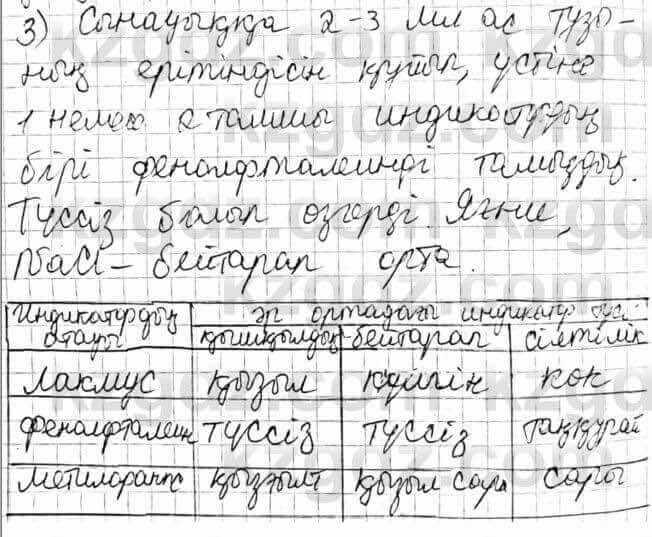 3) Сынауыққа 2-3 мл ас тұзы-
ның ерітіндісін құйып, үстіне
1 немесе 2 тамшы индикотрдың
бірі фенолфталеинді тамыздық.
Түссіз болып өзгерді. Яғни,
NaCl - бейтарап орта.
Индикатрдың атауы | әр ортадағы индикатр түсі
қышқылдық | бейтарап | сілтілік
Лакмус | қызыл | күлгін | көк
фенолфталеин | түссіз | түссіз | таңқурай
метилоранж | қызғылт | қызыл сары | сары
kzgdz.com